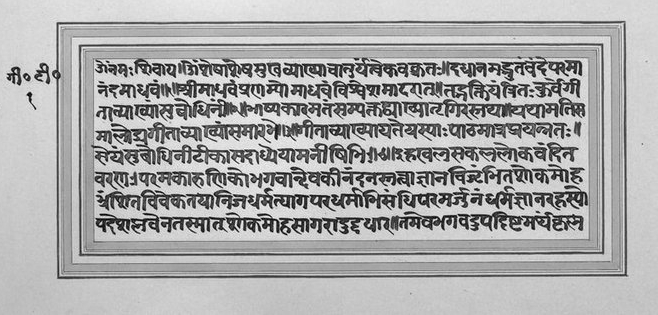 गी० टी०
१
ॐनमः शिवाय॥ॐशेषाशेषमुखव्याख्याचातुर्यंत्वेकवक्त्रतः॥दधानमद्भुतंवंदेपरमा
नंदमाधवं॥१॥श्रीमाधवंप्रणम्योमाधवंविश्वेशमादरात्॥तद्भक्तियंत्रितःकुर्वेगी
ताव्याख्यांसुबोधिनीं॥२॥भाष्यकारमतंसम्यक्तद्व्याख्यातृगिरस्तथा॥यथामतिस
मालोड्यगीताव्याख्यांसमारभे॥३॥गीताव्याख्यायतेयस्याःपाठमात्रप्रयत्नतः॥
सेयंसुबोधिनीटीकासदाध्येयामनीषिभिः॥४॥इहखलुसकललोकवंदित
चरणःपरमकारुणिकोभगवान्देवकीनंदनस्तत्त्वाज्ञानविजृंभितशोकमोह
भ्रंशितविवेकतयानिजधर्मत्यागपरधर्माभिसंधिपरमर्जुनंधर्मज्ञानरहस्यो
पदेशप्लवेनतस्मात्शोकमोहसागरादुद्दधार॥तमेवभगवदुपदिष्टमर्थंकृष्ण